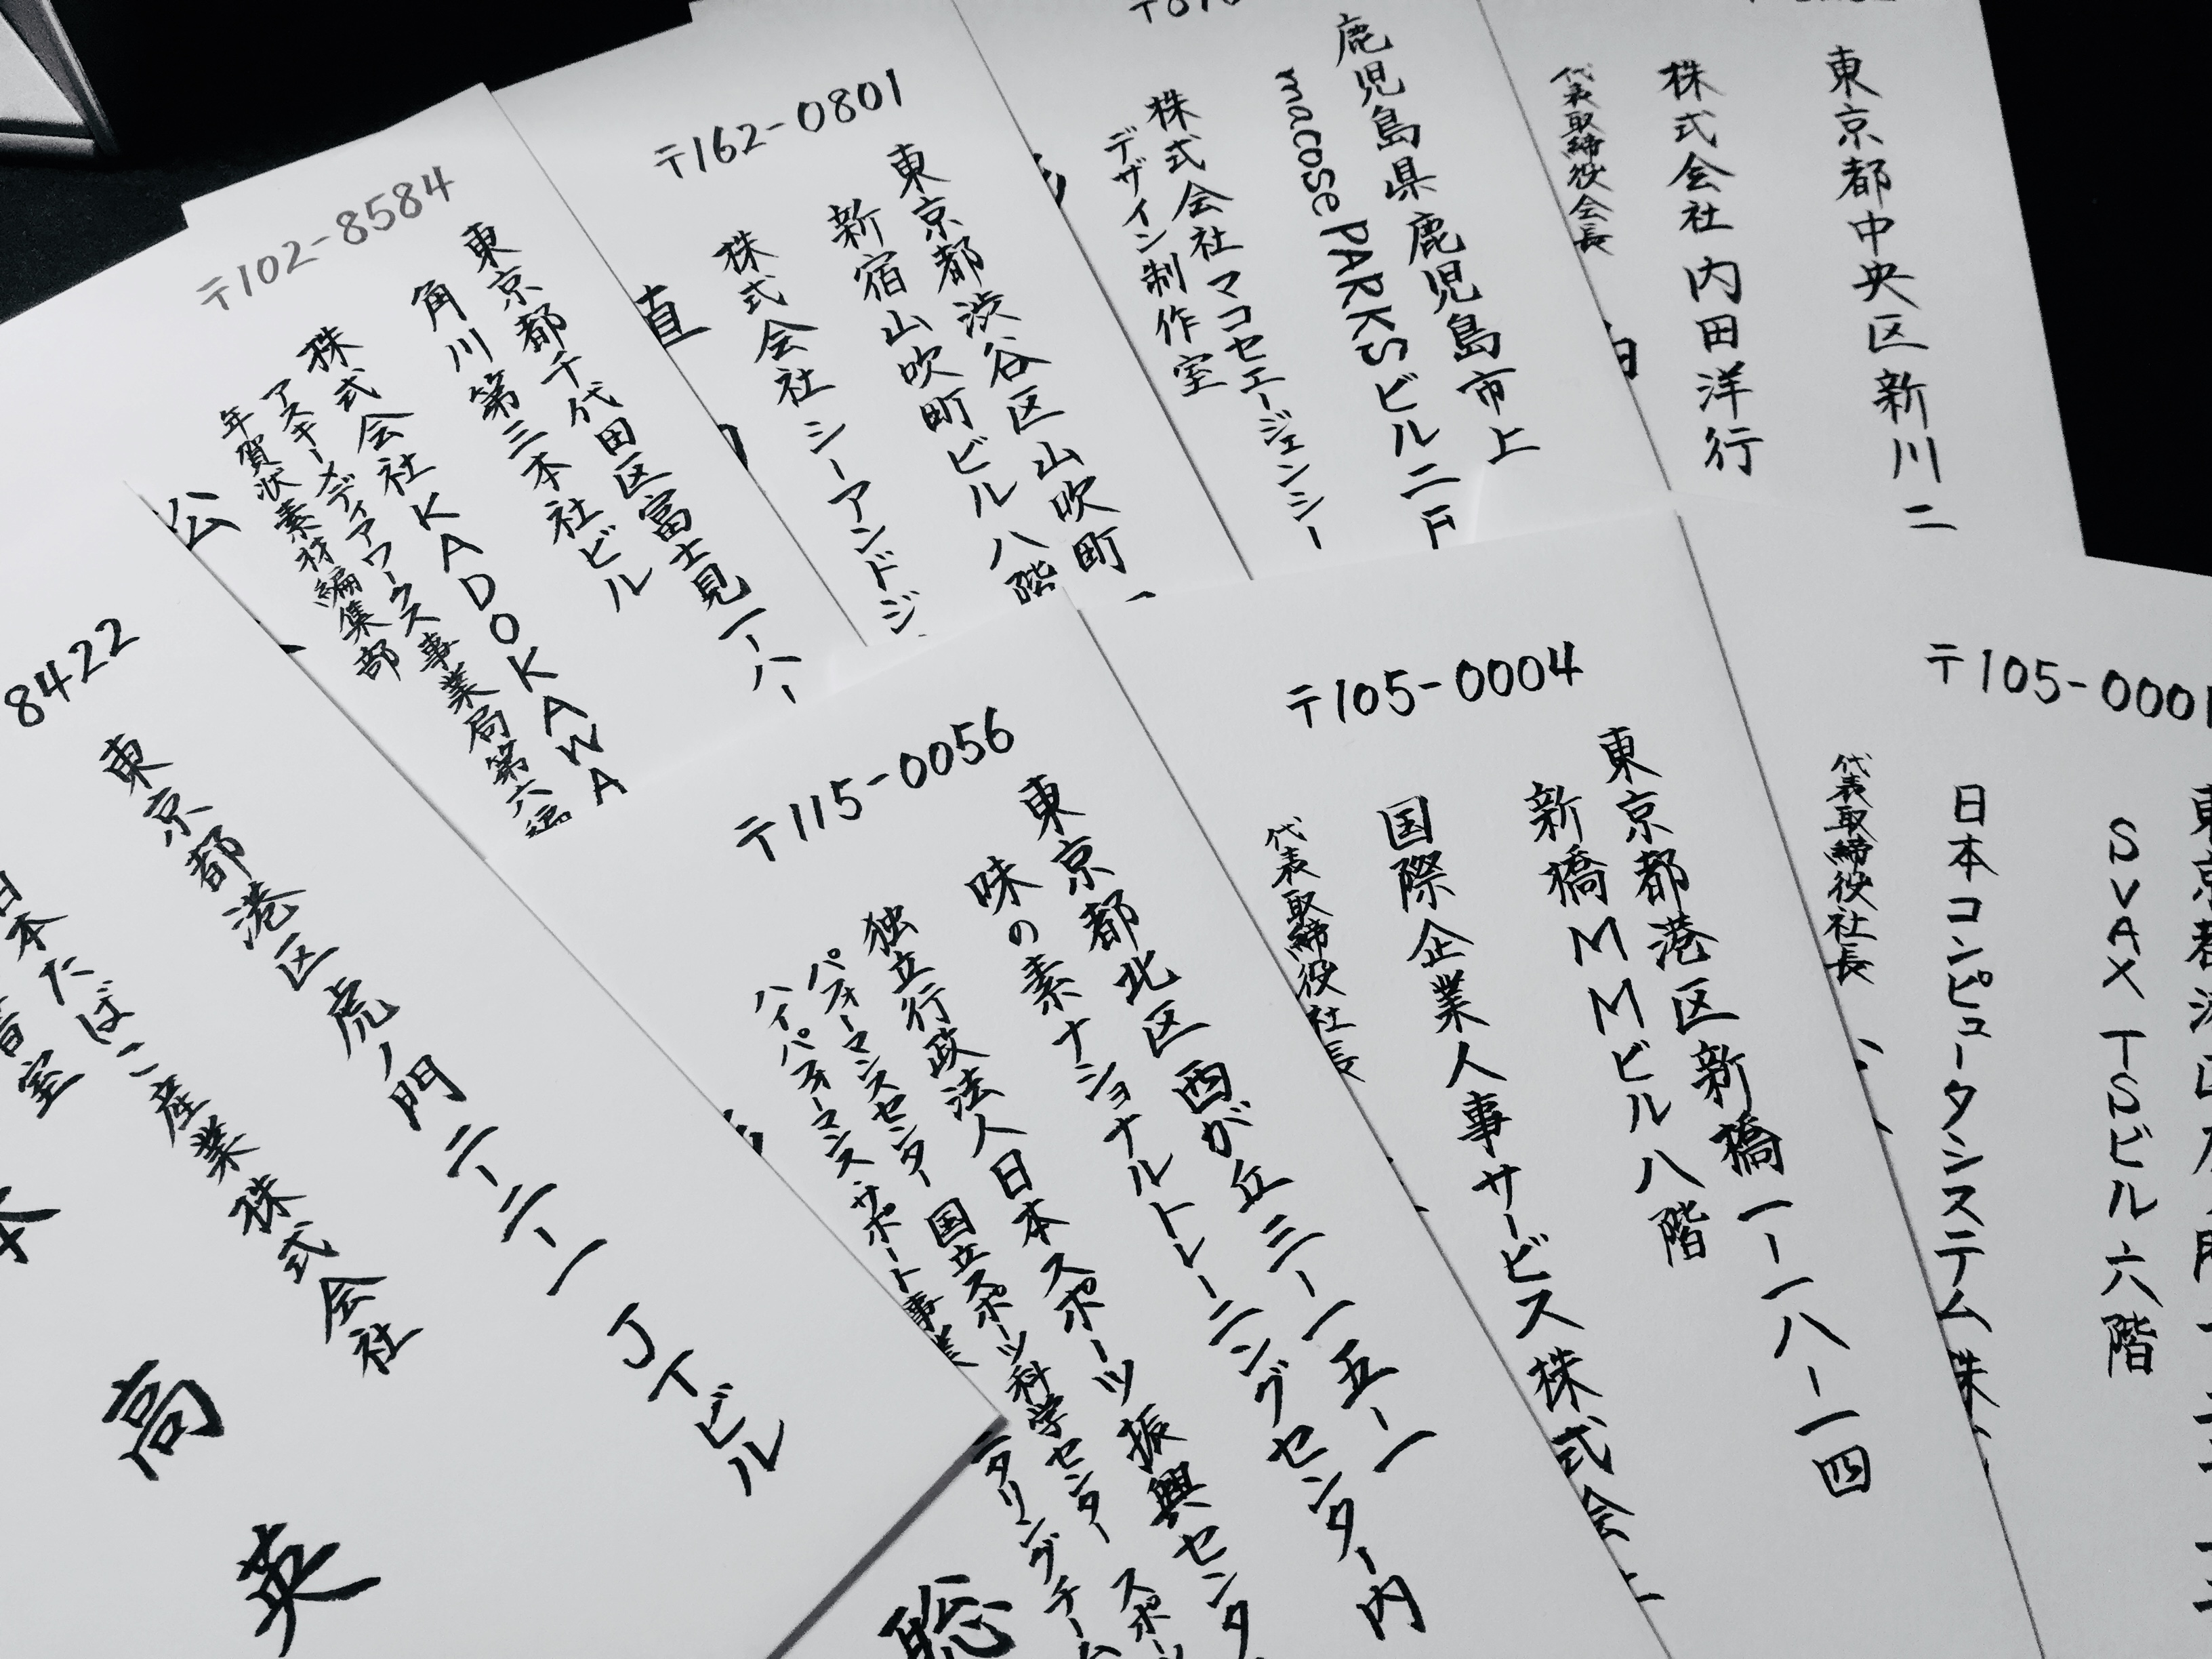 〒102-8584
東京都千代田区富士見一ー八ー
角川第三本社ビル
株式会社KADOKAWA
アスキー・メディアワークス事業局第六編
年賀状素材編集部
公
〒162-0801
東京都渋谷区山吹町
新宿山吹町ビル八階
株式会社シーアンドジ
直
鹿児島県鹿児島市上
macose PARKSビル二F
株式会社マコセエージェンシー
デザイン制作室
東京都中央区新川二
株式会社内田洋行
代表取締役会長
8422
東京都港区虎ノ門二ー二ー一 JTビル
日本たばこ産業株式会社
室
本
高英
〒115-0056
東京都北区西が丘三ー一五ー一
味の素ナショナルトレーニングセンター内
独立行政法人日本スポーツ振興センタ
パフォーマンスセンター 国立スポーツ科学センター スポー
ハイパフォーマンス・サポート事業
タリングチーム
聡
〒105-0004
東京都港区新橋一ー一八ー一四
新橋MMビル八階
国際企業人事サービス株式会
代表取締役社長
〒105-0001
SVAX TSビル六階
日本コンピュータシステム株
代表取締役社長